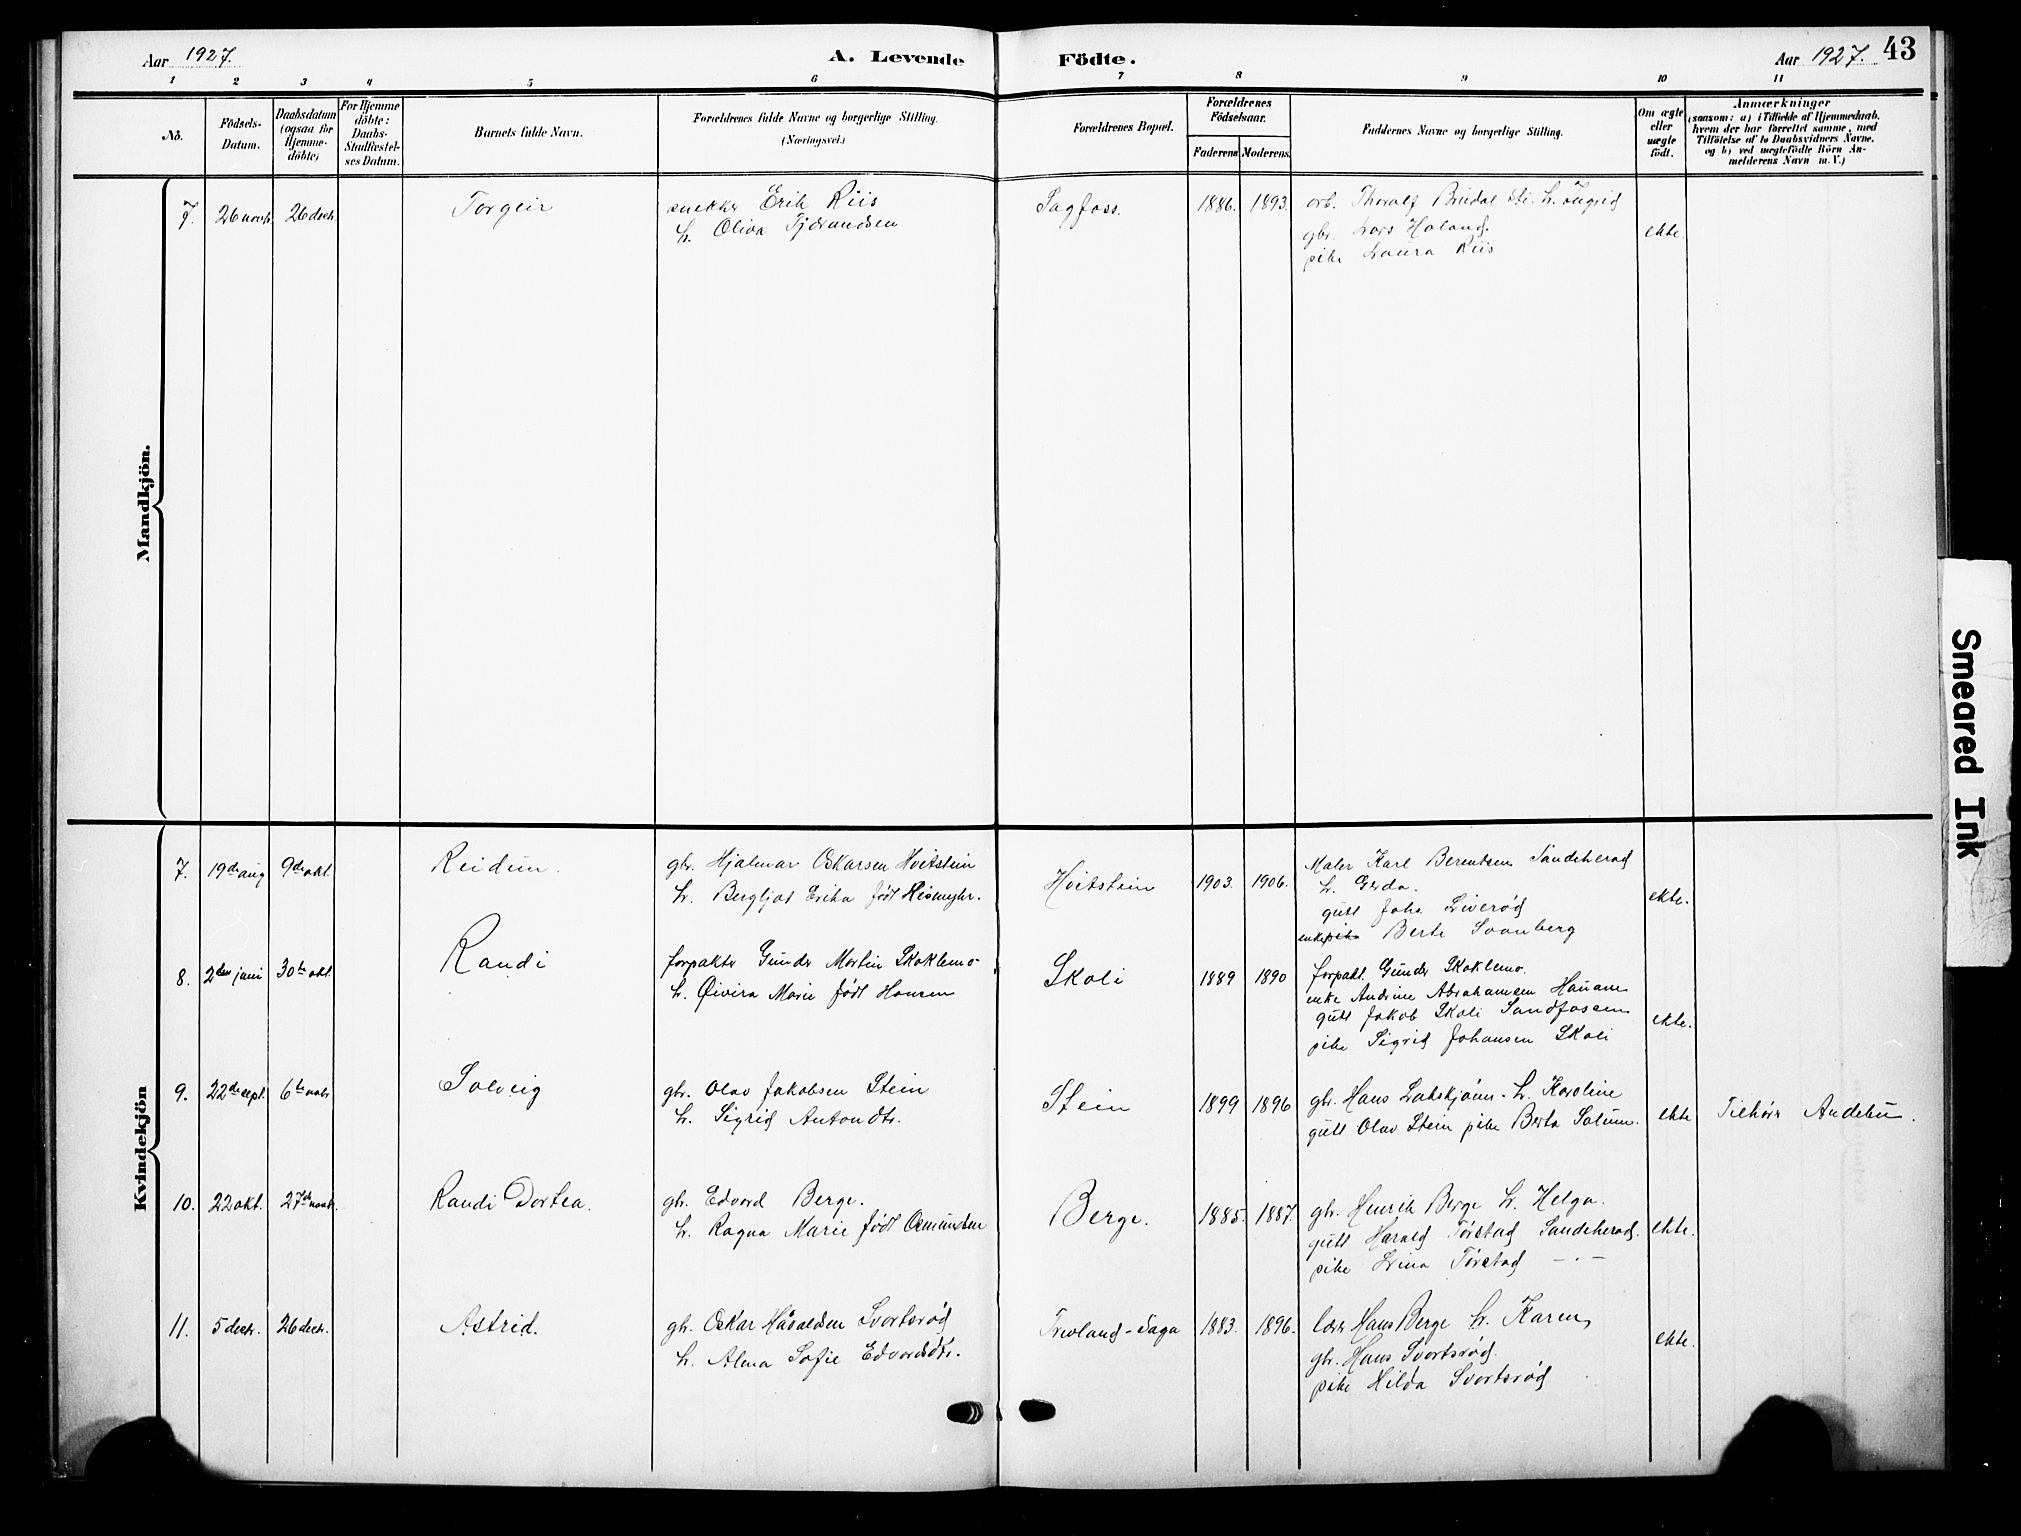 Aar 1927. A. Levende Födte. Aar 1927. 43
1 2 3 4 5 6 7 8 9 10 11
No.
Födsels-
Datum.
Daabsdatum
(ogsaa for
Hjemme-
döbte)
For Hjemme
döbte:
Daabs-
Stadfæstel-
ses Datum.
Barnets fulde Navn.
Forældrenes fulde Navne og borgerlige Stilling.
(Næringsvei.)
Forældrenes Bopæl.
Forældrenes
Födselsaar.
Faderens Moderens.
Faddernes Navne og borgerlige Stilling.
Om ægte
eller
uægte
født.
Anmærkninger
(saasom: a) i Tilfælde af Hjemmedaab,
hvem der har forrettet samme, med
Tilföielse af to Daabsvidners Navne.
og b) ved uægtefödte Börn An-
melderens Navn m. V.)
Mandkjön.
7. 26 novbr. 26 decbr. Torgeir
snekker Erik Riis
h. Oliva Tjdrandsen
Sagfoss. 1886. 1893.
arb. Thoralf Brudal h. Ingrid
gbr. Lars Holand.
pike Laura Riis
ekte.
Kvindekjön
7. 19de aug 9de okt. Reidun.
gbr. Hjalmar Oskarsen Hvitstein
h. Bergljot Erika født Hismyhr.
Hvitstein 1903. 1906.
Maler Karl Berentsen Sandeherad
h. Gerda.
gutt Joh. Liverød
enke pike Berte Svanberg
ekte.
8. 2den juni 30te okt. Randi
forpakter Gunder Martin Skoklemo
h. Øivira Marie født Hansen
Skoli 1889 1890
forpakt. Gunder Skoklemo.
enke Andrine Abrahamsen Hauane
gutt Jakob Skoli Sandfossen
pike Sigrid Johansen Skoli
ekte.
9. 22de sept. 6te novbr. Solveig
gbr. Olav Jakobsen Stein
h. Sigrid Antondtr.
Stein 1899 1896
gbr. Hans Lakskjønn. h. Karoline
gutt Olav Stein pike Berta Solum.
ekte Tilhører Andebu.
10. 22 okt. 27de novbr. Randi Dortea.
gbr. Edvard Berge.
h. Ragna Marie født Osmundsen
Berge. 1885. 1887.
gbr. Henrik Berge h. Helga.
gutt Harald Tørstad Sandeherad.
pike Lina Tørstad — . —
ekte.
11. 5 decbr. 26 decbr. Astrid.
gbr. Oskar Håvaldsen Svartsrød
h. Alma Sofie Edvardsdtr.
Trevland-Saga 1883. 1896.
lærer Hans Berge h. Karen
gbr. Hans Svartsrød.
pike Hilda Svartsrød
ekte.
Smeared Ink